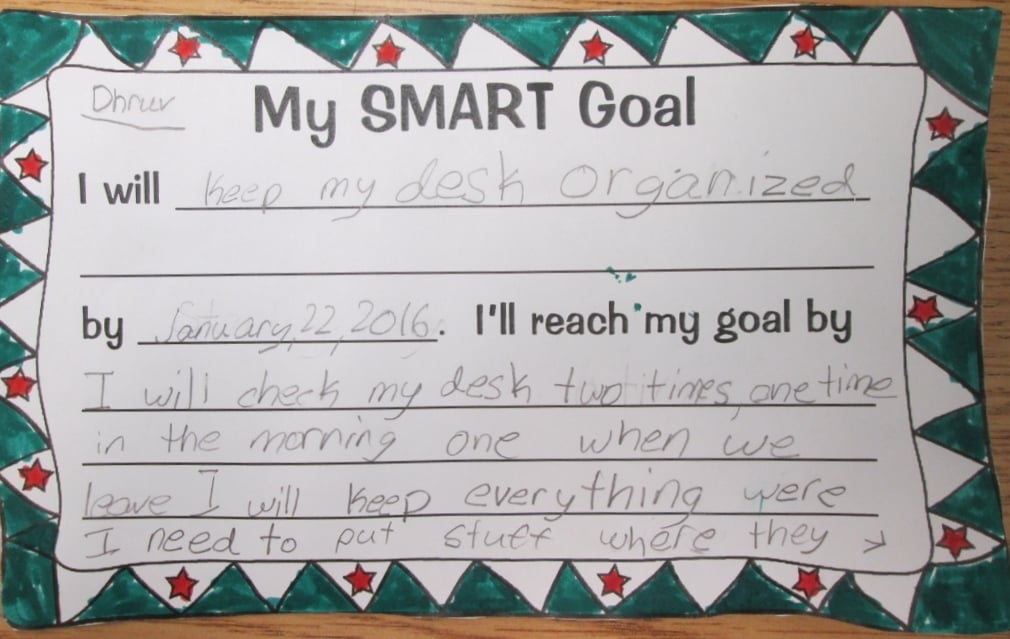 Dhruv
My SMART Goal
I will keep my desk organized
by January, 22, 2016. I'll reach my goal by
I will check my desk two times, one time
in the morning one when we
leave I will keep everything were
I need to put stuff where they >